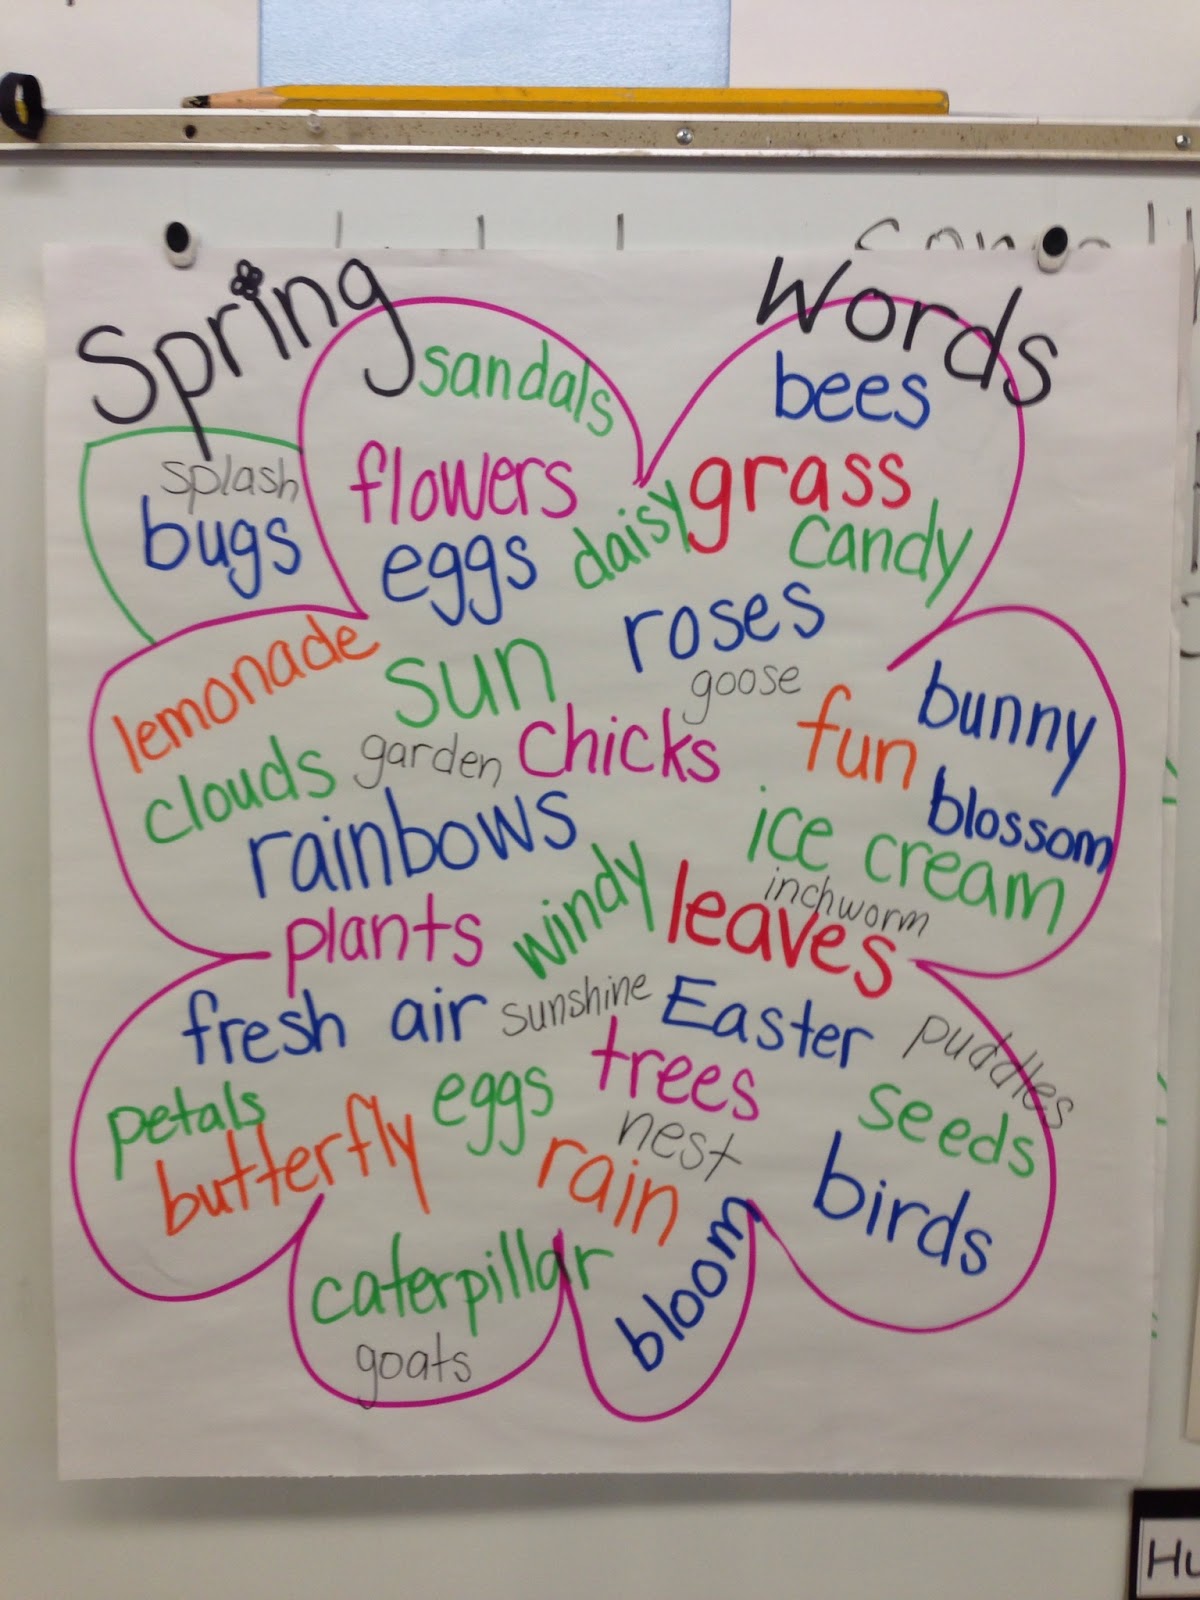 Spring Words
sandals
bees
splash
flowers
grass
bugs
eggs
daisy
candy
lemonade
sun
roses
goose
bunny
clouds
garden
chicks
fun
rainbows
ice cream
blossom
plants
windy
leaves
inchworm
fresh air
sunshine
Easter
puddles
petals
eggs
trees
seeds
butterfly
rain
nest
birds
caterpillar
bloom
goats